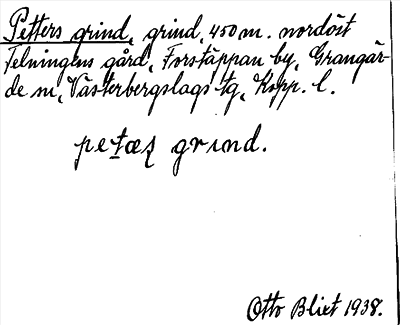 Petters grind, grind, 450 m. nordöst
Telningens gård, Forstäppan by, Grangär-
de sn, Västerbergslags tg, Kopp. l.
petæʂ grɪnd.
Otto Blixt 1938.